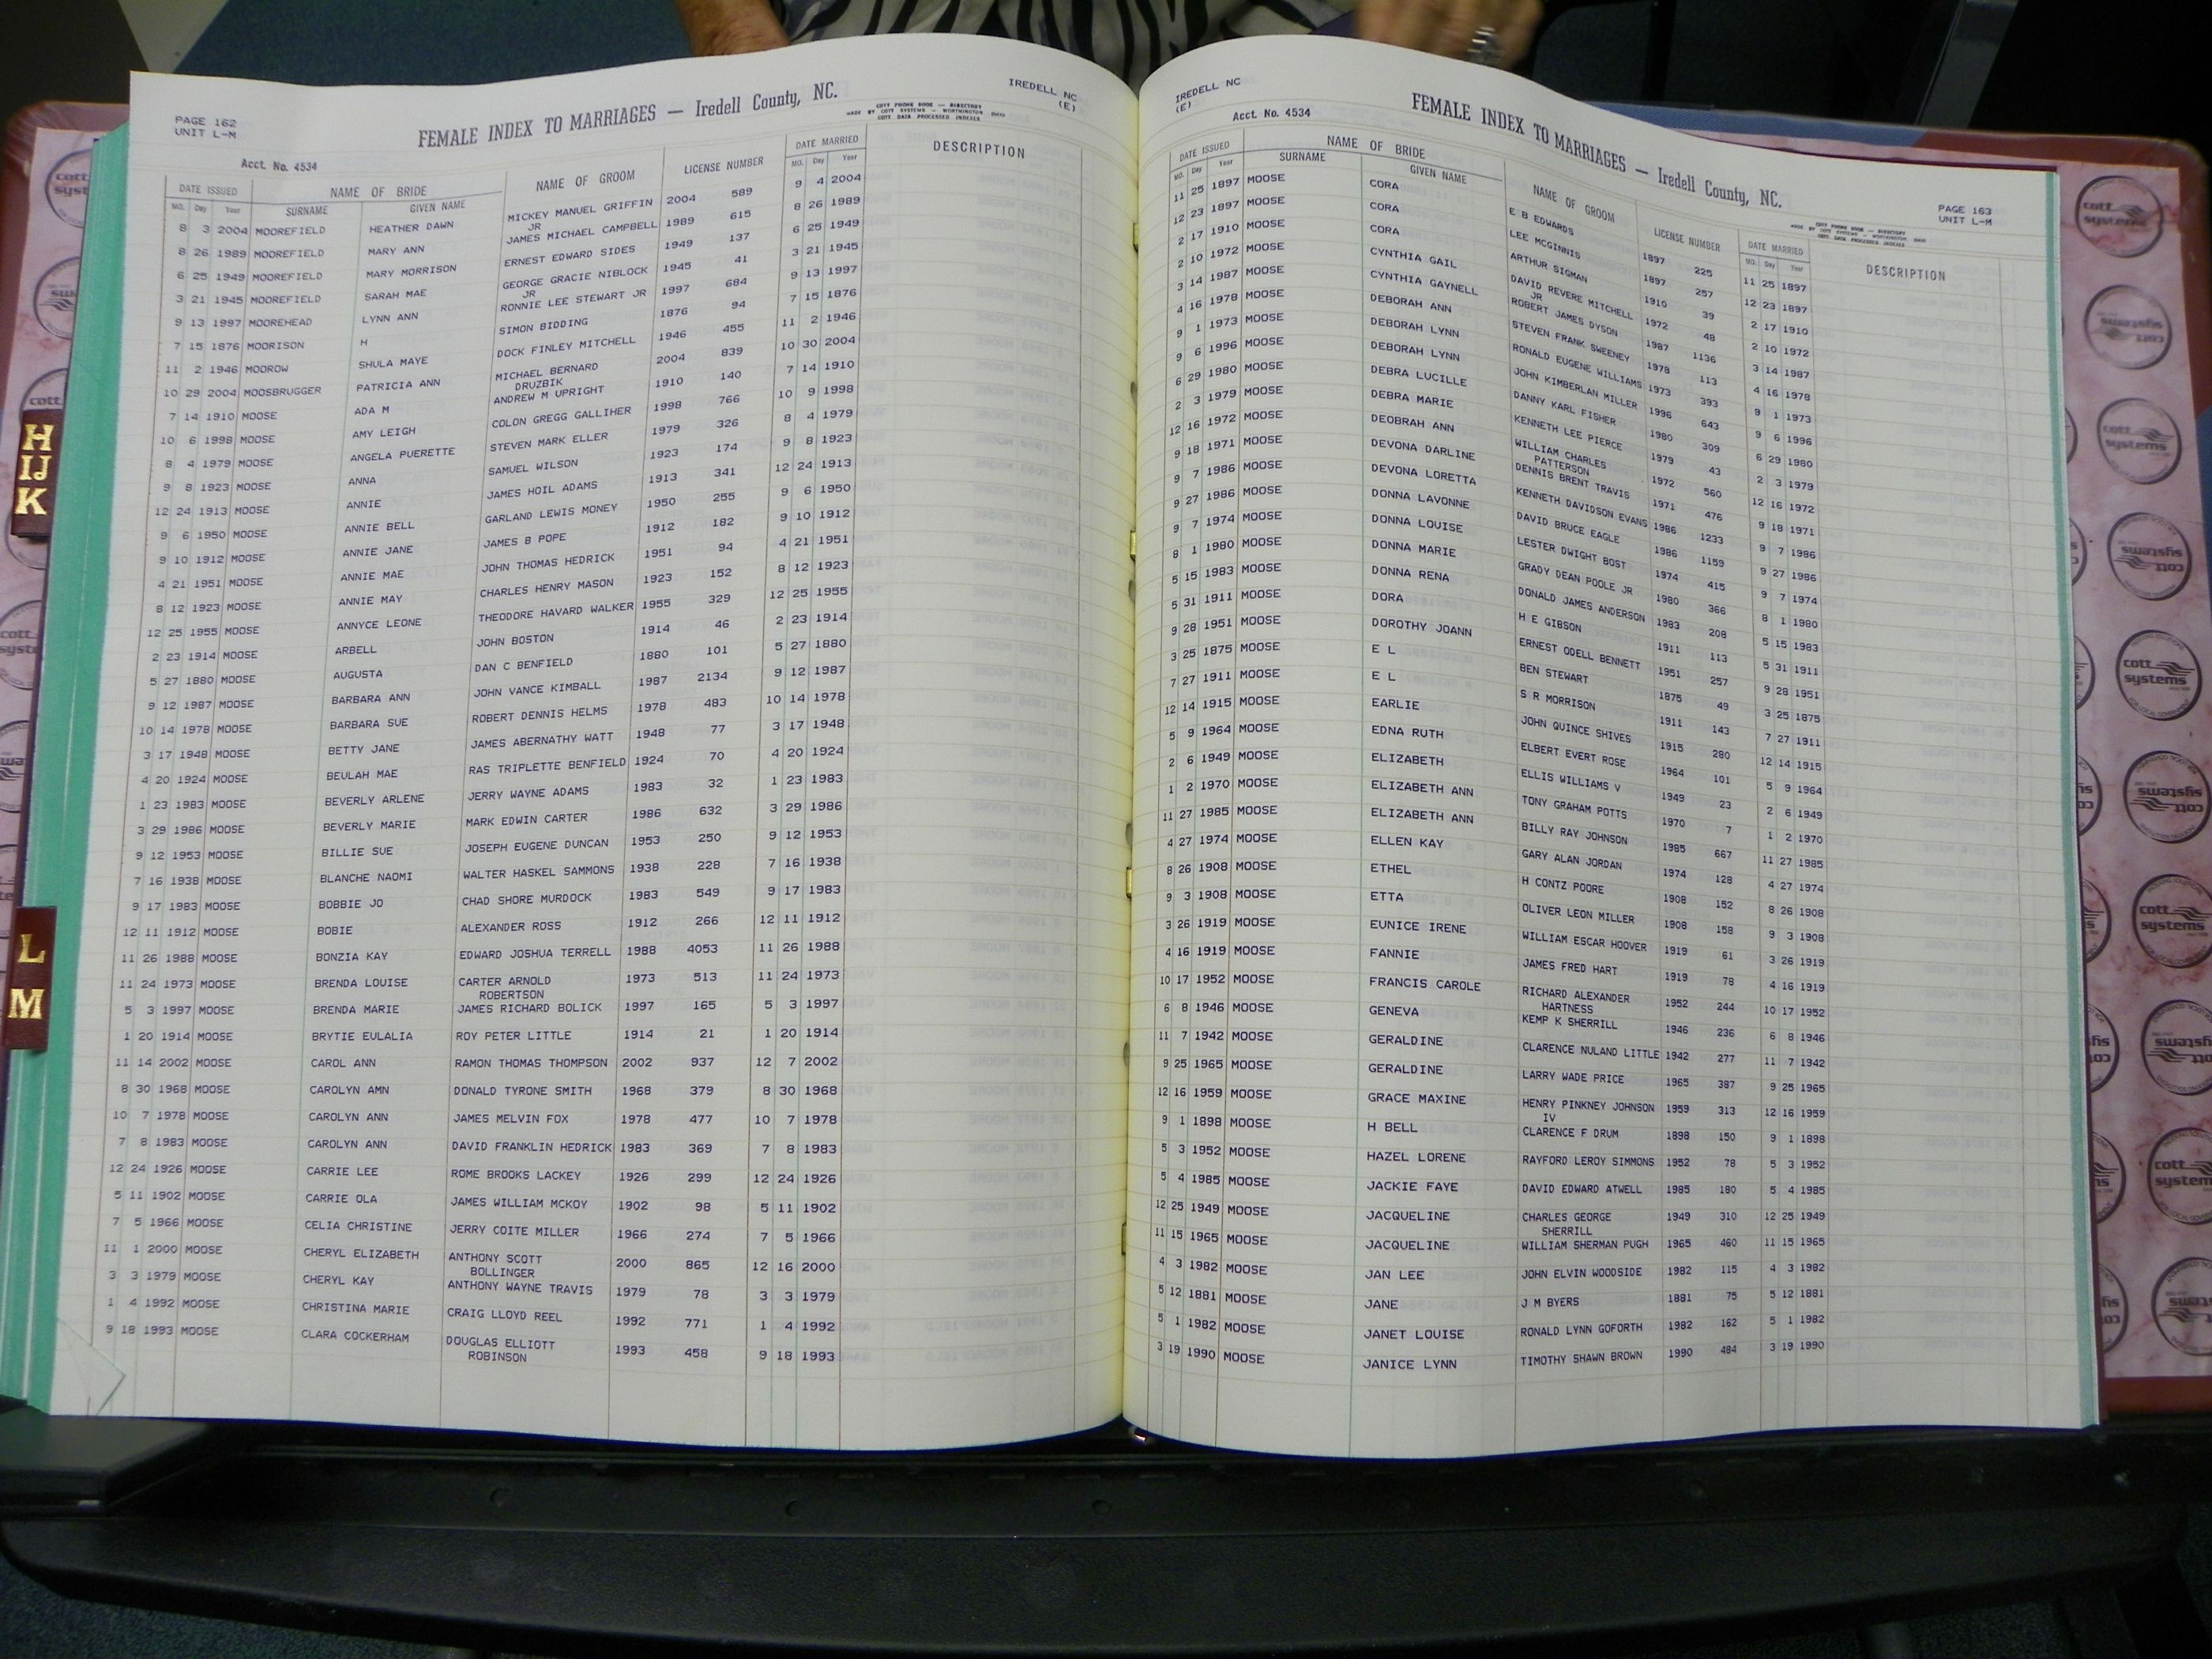 PAGE 162
UNIT L-M
FEMALE INDEX TO MARRIAGES — Iredell County, NC.
IREDELL NC
(E)
Acct. No. 4534
COTT PHONE BOOK — DIRECTORY
MADE BY COTT SYSTEMS — WORTHINGTON OHIO
COTT DATA PROCESSED INDEXES
DATE ISSUED NAME OF BRIDE NAME OF GROOM LICENSE NUMBER DATE MARRIED DESCRIPTION
MO. Day Year SURNAME GIVEN NAME MO. Day Year
8 3 2004 MOOREFIELD HEATHER DAWN MICKEY MANUEL GRIFFIN 2004 589 9 4 2004
JR
8 26 1989 MOOREFIELD MARY ANN JAMES MICHAEL CAMPBELL 1989 615 8 26 1989
6 25 1949 MOOREFIELD MARY MORRISON ERNEST EDWARD SIDES 1949 137 6 25 1949
3 21 1945 MOOREFIELD SARAH MAE GEORGE GRACIE NIBLOCK 1945 41 3 21 1945
JR
9 13 1997 MOOREHEAD LYNN ANN RONNIE LEE STEWART JR 1997 684 9 13 1997
7 15 1876 MOORISON H SIMON BIDDING 1876 94 7 15 1876
11 2 1946 MOOROW SHULA MAYE DOCK FINLEY MITCHELL 1946 455 11 2 1946
10 29 2004 MOOSBRUGGER PATRICIA ANN MICHAEL BERNARD 2004 839 10 30 2004
DRUZBIK
7 14 1910 MOOSE ADA M ANDREW M UPRIGHT 1910 140 7 14 1910
10 6 1998 MOOSE AMY LEIGH COLON GREGG GALLIHER 1998 766 10 9 1998
8 4 1979 MOOSE ANGELA PUERETTE STEVEN MARK ELLER 1979 326 8 4 1979
9 8 1923 MOOSE ANNA SAMUEL WILSON 1923 174 9 8 1923
12 24 1913 MOOSE ANNIE JAMES HOIL ADAMS 1913 341 12 24 1913
9 6 1950 MOOSE ANNIE BELL GARLAND LEWIS MONEY 1950 255 9 6 1950
9 10 1912 MOOSE ANNIE JANE JAMES B POPE 1912 182 9 10 1912
4 21 1951 MOOSE ANNIE MAE JOHN THOMAS HEDRICK 1951 94 4 21 1951
8 12 1923 MOOSE ANNIE MAY CHARLES HENRY MASON 1923 152 8 12 1923
12 25 1955 MOOSE ANNYCE LEONE THEODORE HAVARD WALKER 1955 329 12 25 1955
2 23 1914 MOOSE ARBELL JOHN BOSTON 1914 46 2 23 1914
5 27 1880 MOOSE AUGUSTA DAN C BENFIELD 1880 101 5 27 1880
9 12 1987 MOOSE BARBARA ANN JOHN VANCE KIMBALL 1987 2134 9 12 1987
10 14 1978 MOOSE BARBARA SUE ROBERT DENNIS HELMS 1978 483 10 14 1978
3 17 1948 MOOSE BETTY JANE JAMES ABERNATHY WATT 1948 77 3 17 1948
4 20 1924 MOOSE BEULAH MAE RAS TRIPLETTE BENFIELD 1924 70 4 20 1924
1 23 1983 MOOSE BEVERLY ARLENE JERRY WAYNE ADAMS 1983 32 1 23 1983
3 29 1986 MOOSE BEVERLY MARIE MARK EDWIN CARTER 1986 632 3 29 1986
9 12 1953 MOOSE BILLIE SUE JOSEPH EUGENE DUNCAN 1953 250 9 12 1953
7 16 1938 MOOSE BLANCHE NAOMI WALTER HASKEL SAMMONS 1938 228 7 16 1938
9 17 1983 MOOSE BOBBIE JO CHAD SHORE MURDOCK 1983 549 9 17 1983
12 11 1912 MOOSE BOBIE ALEXANDER ROSS 1912 266 12 11 1912
11 26 1988 MOOSE BONZIA KAY EDWARD JOSHUA TERRELL 1988 4053 11 26 1988
11 24 1973 MOOSE BRENDA LOUISE CARTER ARNOLD 1973 513 11 24 1973
ROBERTSON
5 3 1997 MOOSE BRENDA MARIE JAMES RICHARD BOLICK 1997 165 5 3 1997
1 20 1914 MOOSE BRYTIE EULALIA ROY PETER LITTLE 1914 21 1 20 1914
11 14 2002 MOOSE CAROL ANN RAMON THOMAS THOMPSON 2002 937 12 7 2002
8 30 1968 MOOSE CAROLYN AMN DONALD TYRONE SMITH 1968 379 8 30 1968
10 7 1978 MOOSE CAROLYN ANN JAMES MELVIN FOX 1978 477 10 7 1978
7 8 1983 MOOSE CAROLYN ANN DAVID FRANKLIN HEDRICK 1983 369 7 8 1983
12 24 1926 MOOSE CARRIE LEE ROME BROOKS LACKEY 1926 299 12 24 1926
5 11 1902 MOOSE CARRIE OLA JAMES WILLIAM MCKOY 1902 98 5 11 1902
7 5 1966 MOOSE CELIA CHRISTINE JERRY COITE MILLER 1966 274 7 5 1966
11 1 2000 MOOSE CHERYL ELIZABETH ANTHONY SCOTT 2000 865 12 16 2000
BOLLINGER
3 3 1979 MOOSE CHERYL KAY ANTHONY WAYNE TRAVIS 1979 78 3 3 1979
1 4 1992 MOOSE CHRISTINA MARIE CRAIG LLOYD REEL 1992 771 1 4 1992
9 18 1993 MOOSE CLARA COCKERHAM DOUGLAS ELLIOTT 1993 458 9 18 1993
ROBINSON
IREDELL NC
(E)
FEMALE INDEX TO MARRIAGES — Iredell County, NC.
PAGE 163
UNIT L-M
Acct. No. 4534
COTT PHONE BOOK — DIRECTORY
MADE BY COTT SYSTEMS — WORTHINGTON OHIO
COTT DATA PROCESSED INDEXES
DATE ISSUED NAME OF BRIDE NAME OF GROOM LICENSE NUMBER DATE MARRIED DESCRIPTION
MO. Day Year SURNAME GIVEN NAME MO. Day Year
11 25 1897 MOOSE CORA E B EDWARDS 1897 225 11 25 1897
12 23 1897 MOOSE CORA LEE MCGINNIS 1897 257 12 23 1897
2 17 1910 MOOSE CORA ARTHUR SIGMAN 1910 39 2 17 1910
2 10 1972 MOOSE CYNTHIA GAIL DAVID REVERE MITCHELL 1972 48 2 10 1972
JR
3 14 1987 MOOSE CYNTHIA GAYNELL ROBERT JAMES DYSON 1987 1136 3 14 1987
4 16 1978 MOOSE DEBORAH ANN STEVEN FRANK SWEENEY 1978 113 4 16 1978
9 1 1973 MOOSE DEBORAH LYNN RONALD EUGENE WILLIAMS 1973 393 9 1 1973
9 6 1996 MOOSE DEBORAH LYNN JOHN KIMBERLAN MILLER 1996 643 9 6 1996
6 29 1980 MOOSE DEBRA LUCILLE DANNY KARL FISHER 1980 309 6 29 1980
2 3 1979 MOOSE DEBRA MARIE KENNETH LEE PIERCE 1979 43 2 3 1979
12 16 1972 MOOSE DEOBRAH ANN WILLIAM CHARLES 1972 560 12 16 1972
PATTERSON
9 18 1971 MOOSE DEVONA DARLINE DENNIS BRENT TRAVIS 1971 476 9 18 1971
9 7 1986 MOOSE DEVONA LORETTA KENNETH DAVIDSON EVANS 1986 1233 9 7 1986
9 27 1986 MOOSE DONNA LAVONNE DAVID BRUCE EAGLE 1986 1159 9 27 1986
9 7 1974 MOOSE DONNA LOUISE LESTER DWIGHT BOST 1974 415 9 7 1974
8 1 1980 MOOSE DONNA MARIE GRADY DEAN POOLE JR 1980 366 8 1 1980
5 15 1983 MOOSE DONNA RENA DONALD JAMES ANDERSON 1983 208 5 15 1983
5 31 1911 MOOSE DORA H E GIBSON 1911 113 5 31 1911
9 28 1951 MOOSE DOROTHY JOANN ERNEST ODELL BENNETT 1951 257 9 28 1951
3 25 1875 MOOSE E L BEN STEWART 1875 49 3 25 1875
7 27 1911 MOOSE E L S R MORRISON 1911 143 7 27 1911
12 14 1915 MOOSE EARLIE JOHN QUINCE SHIVES 1915 280 12 14 1915
5 9 1964 MOOSE EDNA RUTH ELBERT EVERT ROSE 1964 101 5 9 1964
2 6 1949 MOOSE ELIZABETH ELLIS WILLIAMS V 1949 23 2 6 1949
1 2 1970 MOOSE ELIZABETH ANN TONY GRAHAM POTTS 1970 7 1 2 1970
11 27 1985 MOOSE ELIZABETH ANN BILLY RAY JOHNSON 1985 667 11 27 1985
4 27 1974 MOOSE ELLEN KAY GARY ALAN JORDAN 1974 128 4 27 1974
8 26 1908 MOOSE ETHEL H CONTZ POORE 1908 152 8 26 1908
9 3 1908 MOOSE ETTA OLIVER LEON MILLER 1908 158 9 3 1908
3 26 1919 MOOSE EUNICE IRENE WILLIAM ESCAR HOOVER 1919 61 3 26 1919
4 16 1919 MOOSE FANNIE JAMES FRED HART 1919 78 4 16 1919
10 17 1952 MOOSE FRANCIS CAROLE RICHARD ALEXANDER 1952 244 10 17 1952
HARTNESS
6 8 1946 MOOSE GENEVA KEMP K SHERRILL 1946 236 6 8 1946
11 7 1942 MOOSE GERALDINE CLARENCE NULAND LITTLE 1942 277 11 7 1942
9 25 1965 MOOSE GERALDINE LARRY WADE PRICE 1965 387 9 25 1965
12 16 1959 MOOSE GRACE MAXINE HENRY PINKNEY JOHNSON 1959 313 12 16 1959
IV
9 1 1898 MOOSE H BELL CLARENCE F DRUM 1898 150 9 1 1898
5 3 1952 MOOSE HAZEL LORENE RAYFORD LEROY SIMMONS 1952 78 5 3 1952
5 4 1985 MOOSE JACKIE FAYE DAVID EDWARD ATWELL 1985 180 5 4 1985
12 25 1949 MOOSE JACQUELINE CHARLES GEORGE 1949 310 12 25 1949
SHERRILL
11 15 1965 MOOSE JACQUELINE WILLIAM SHERMAN PUGH 1965 460 11 15 1965
4 3 1982 MOOSE JAN LEE JOHN ELVIN WOODSIDE 1982 115 4 3 1982
5 12 1881 MOOSE JANE J M BYERS 1881 75 5 12 1881
5 1 1982 MOOSE JANET LOUISE RONALD LYNN GOFORTH 1982 162 5 1 1982
3 19 1990 MOOSE JANICE LYNN TIMOTHY SHAWN BROWN 1990 484 3 19 1990
H
IJ
K
L
M
cott
systems
cott
systems
cott
systems
cott
systems